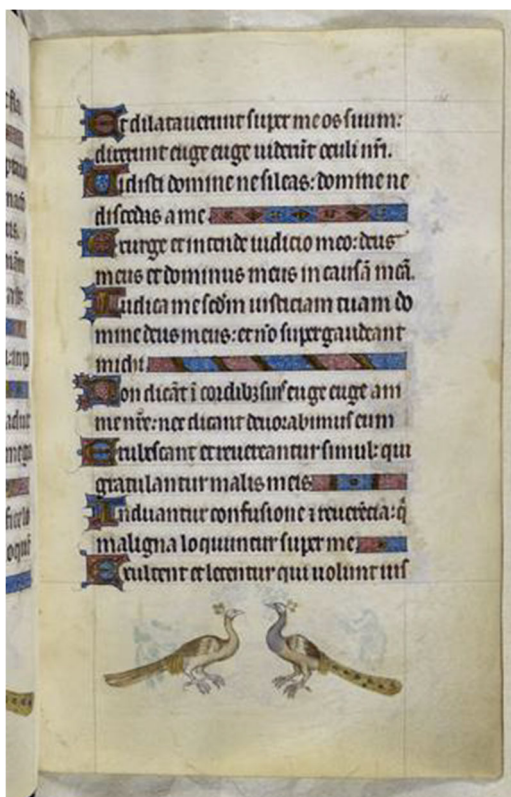 Et dilataverunt super me os suum:
dixerunt euge euge viderūt oculi nr̄i.
Vidisti domine ne sileas: domine ne
discedas a me.
Exurge et intende iudicio meo: deus
meus et dominus meus in causā meā.
Iudica me scđm iusticiam tuam do
mine deus meus: et nō supergaudeant
michi.
Non dicāt ī cordibȝ suis euge euge ani
me nr̄e: nec dicant devorabimus eum
Erubescant et revereantur simul: qui
gratulantur malis meis
Induantur confusione ⁊ reverēcia: q̄
maligna loquuntur super me
Exultent et letentur qui volunt ius